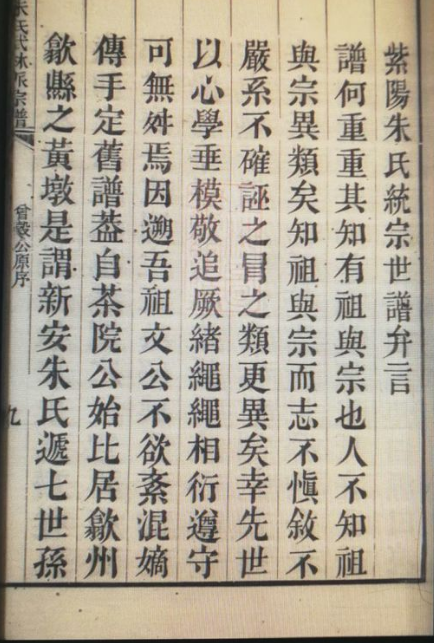 紫陽朱氏統宗世譜弁言
譜何重重其知有祖與宗也人不知祖
與宗異類矣知祖與宗而志不慎敘不
嚴系不確誣之冒之類更異矣幸先世
以心學垂模敬追厥緒繩繩相衍遵守
可無舛焉因遡吾祖文公不欲紊混嫡
傳手定舊譜葢自茶院公始比居歙州
歙縣之黃墩是謂新安朱氏遞七世孫
朱氏武林派宗譜
曾毅公原序
九